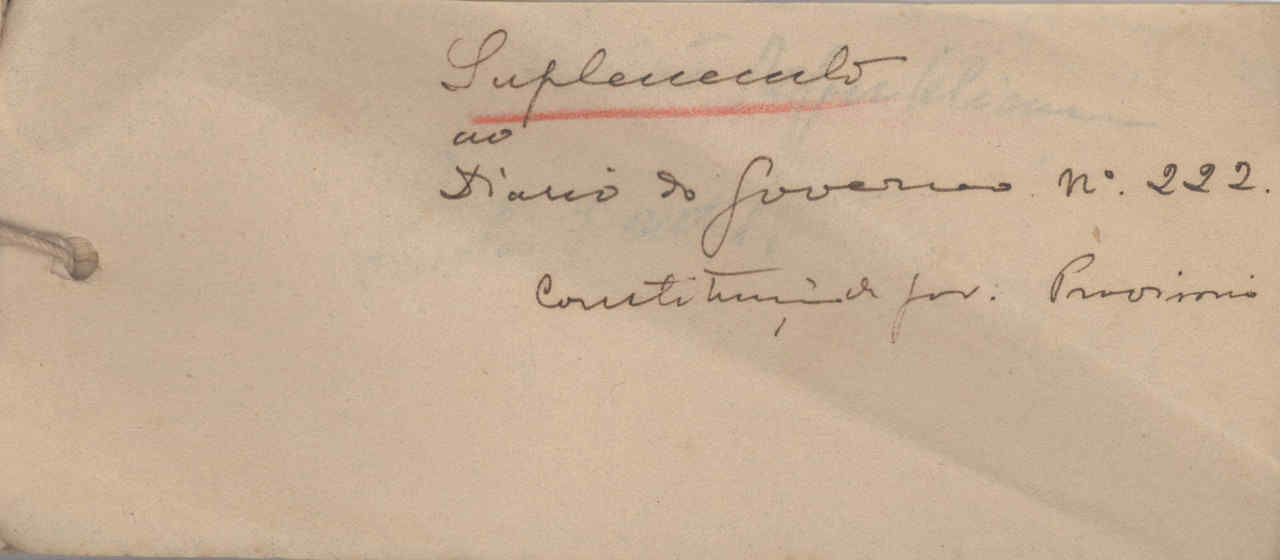 Suplemento
ao
Diario do Governo Nº. 222.
Constituição do Gov. Provisorio